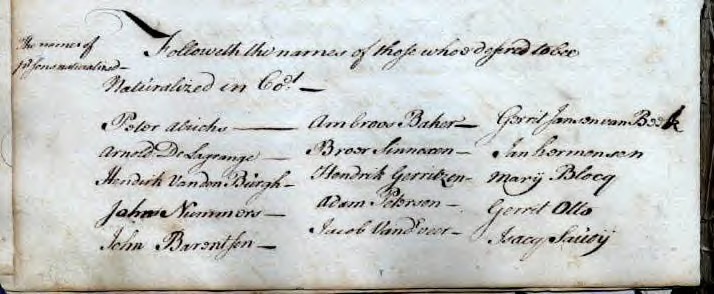 The names of
psons naturalized—
Followeth the names of those whoe desired to bee
Naturalized in Cort —
Peter abichs — Ambroos Baker — Gerrit Jansen van Beek
Arnold De Lagrange — Broer Sinnexen — Jan hermensen
Hendrik Vanden Burgh — Hendrik Gerritzen — Marij Blocq
John Nummers — Adam Peterson — Gerrit Otto
John Barentsen — Jacob Vand'Veer — Isacq Savoij